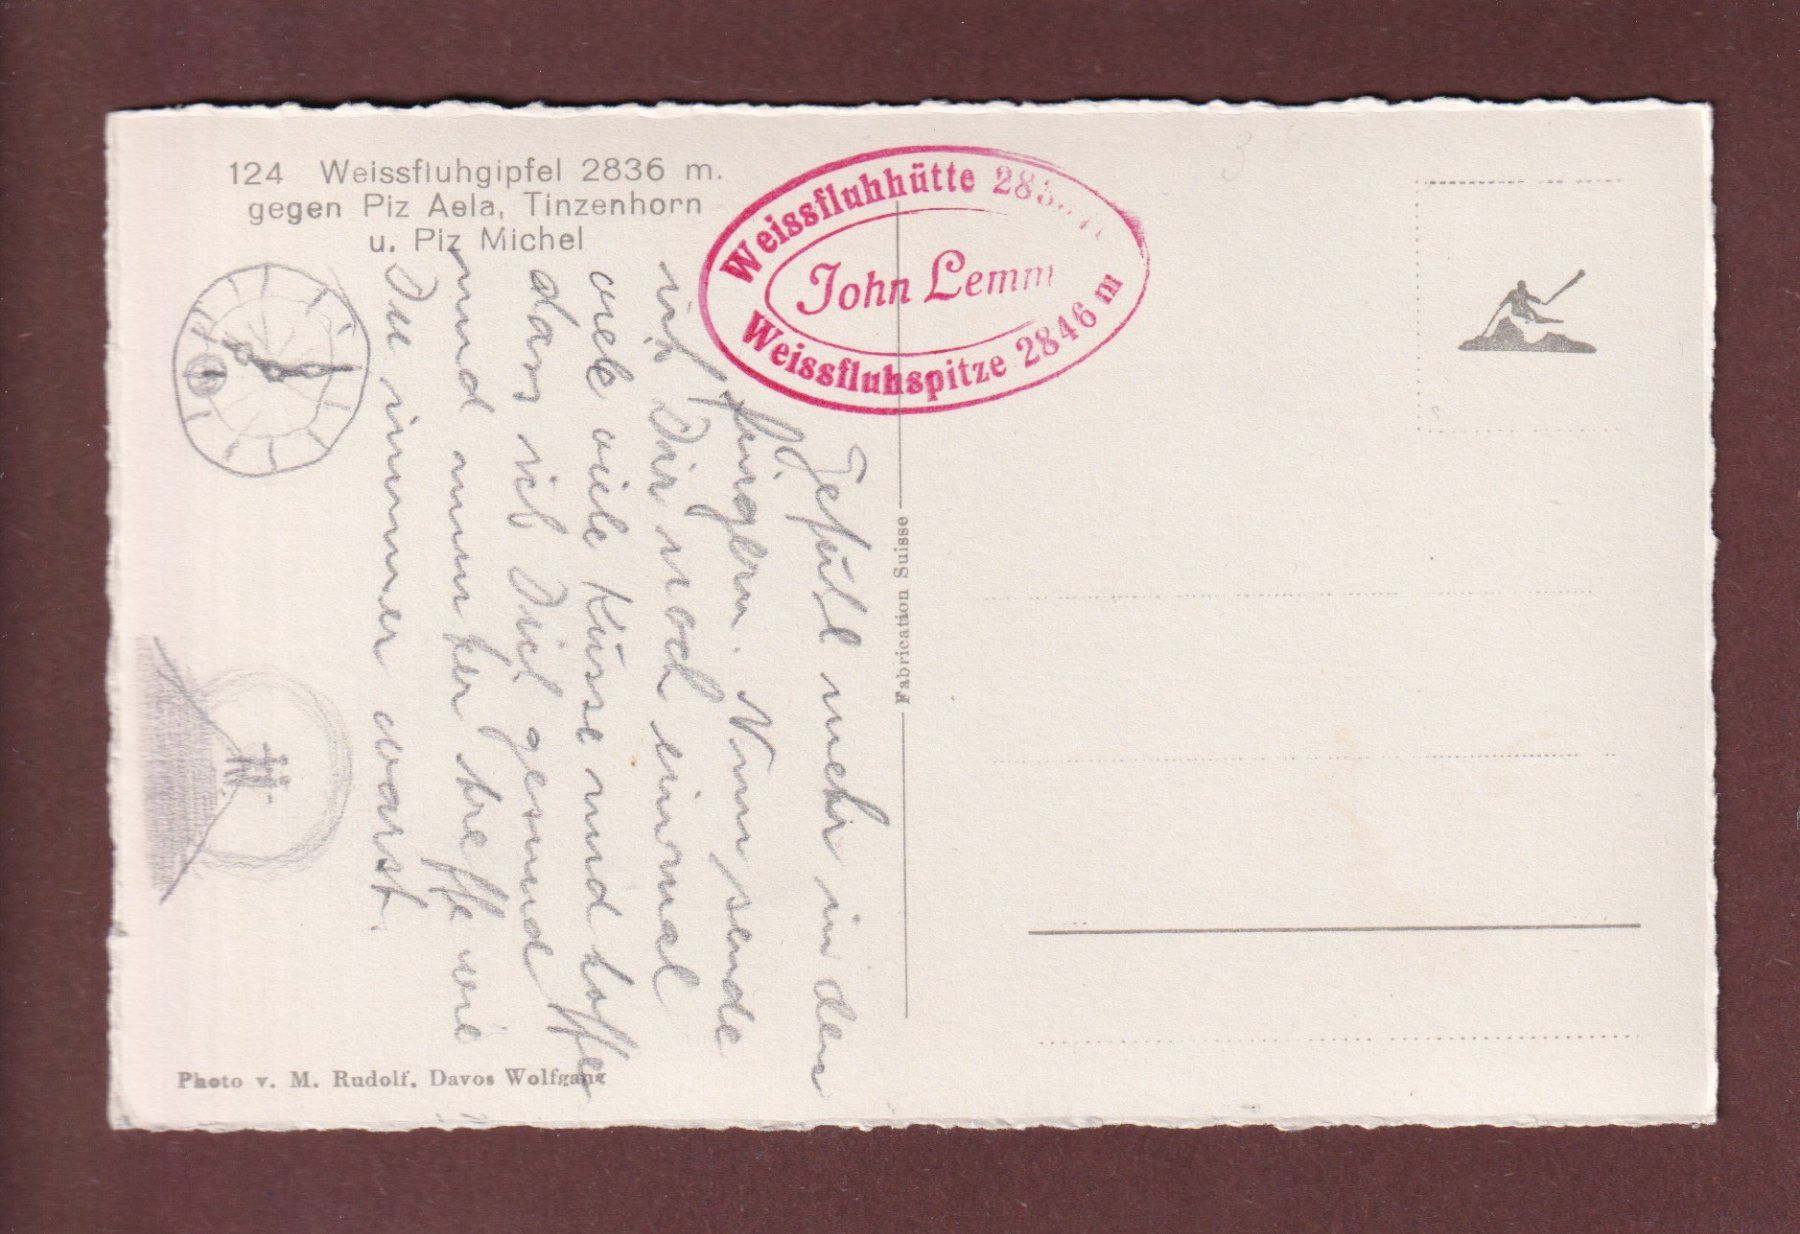 124 Weissfluhgipfel 2836 m.
gegen Piz Aela, Tinzenhorn
u. Piz Michel
Weissfluhhütte
John Lemm
Weissfluhspitze 2846 m
Gefühl mehr in den
Fingern. Nun sende
ich Dir noch einmal
viele viele Küsse und hoffe
dass ich Dich gesund
und munter treffe wie
Du immer warst.
Fabrication Suisse
Photo v. M. Rudolf, Davos Wolfgang